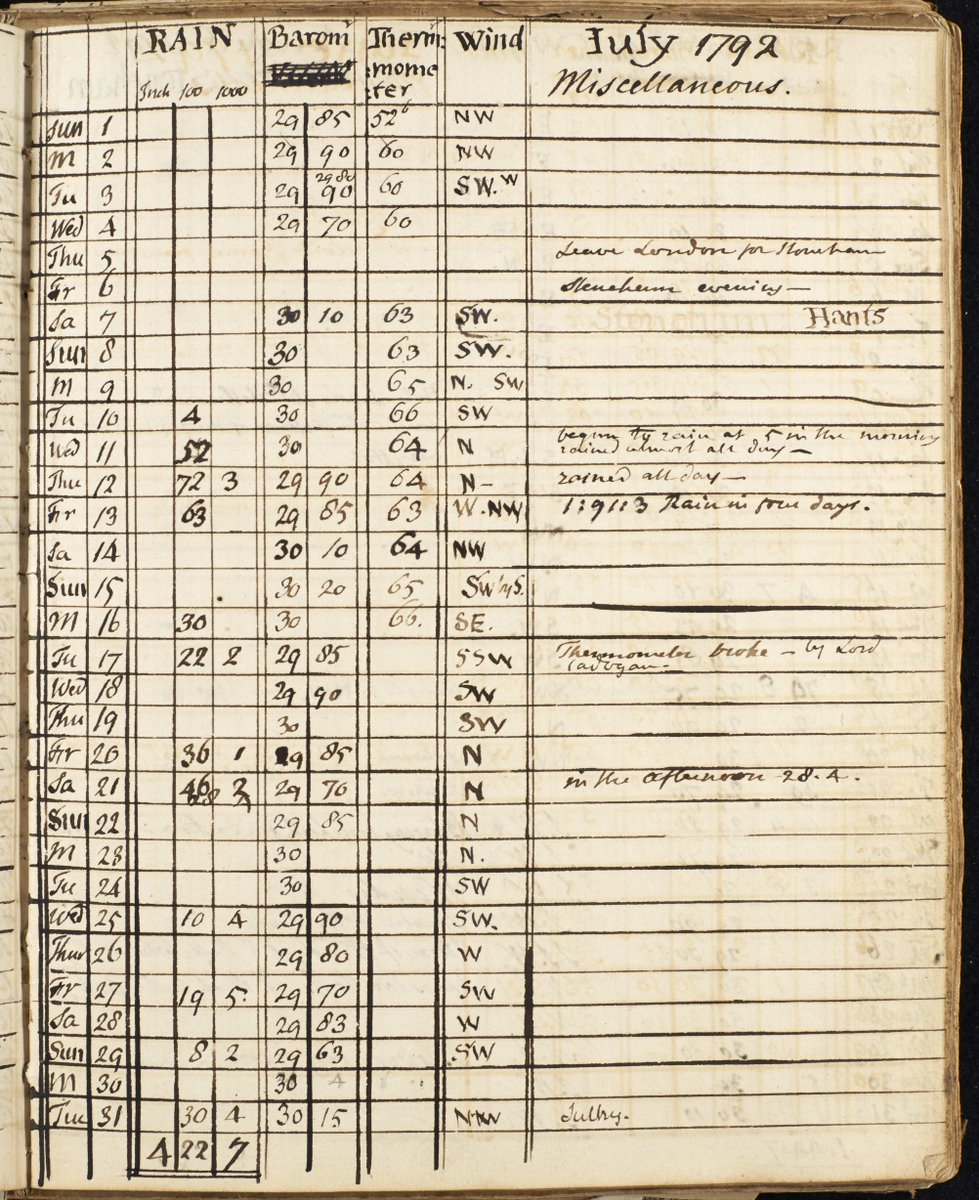 RAIN Barom Therm: Wind July 1792
emome Miscellaneous.
Inch 100 1000 ter
Sun 1 29 85 52 6 NW
M 2 29 90 60 NW
29 80
Tu 3 29 90 60 SW. W
Wed 4 29 70 60
Thu 5 Leave London for Stoneham
Fr 6 Stoneham evening —
Sa 7 30 10 63 SW. Hants
Sun 8 30 63 SW.
M 9 30 65 N. SW
Tu 10 4 30 66 SW
Wed 11 52 30 64 N begun to rain at 5 in the morning
rained almost all day —
Thu 12 72 3 29 90 64 N - rained all day —
Fr 13 63 29 85 63 W. NW 1:9 1:3 Rain in four days.
Sa 14 30 10 64 NW
Sun 15 30 20 65 SW by S.
M 16 30 30 66. SE.
Tu 17 22 2 29 85 SSW Thermometer broke — by Lord
Cadogan —
Wed 18 29 90 SW
Thu 19 30 SW
Fr 20 36 1 29 85 N
Sa 21 46 2 29 70 N in the afternoon 28.4.
Sun 22 29 85 N
M 23 30 N.
Tu 24 30 SW
Wed 25 10 4 29 90 SW.
Thur 26 29 80 W
Fr 27 19 5. 29 70 SW
Sa 28 29 83 W
Sun 29 8 2 29 63 SW
M 30 30 4
Tue 31 30 4 30 15 NW Sultry.
4 22 7